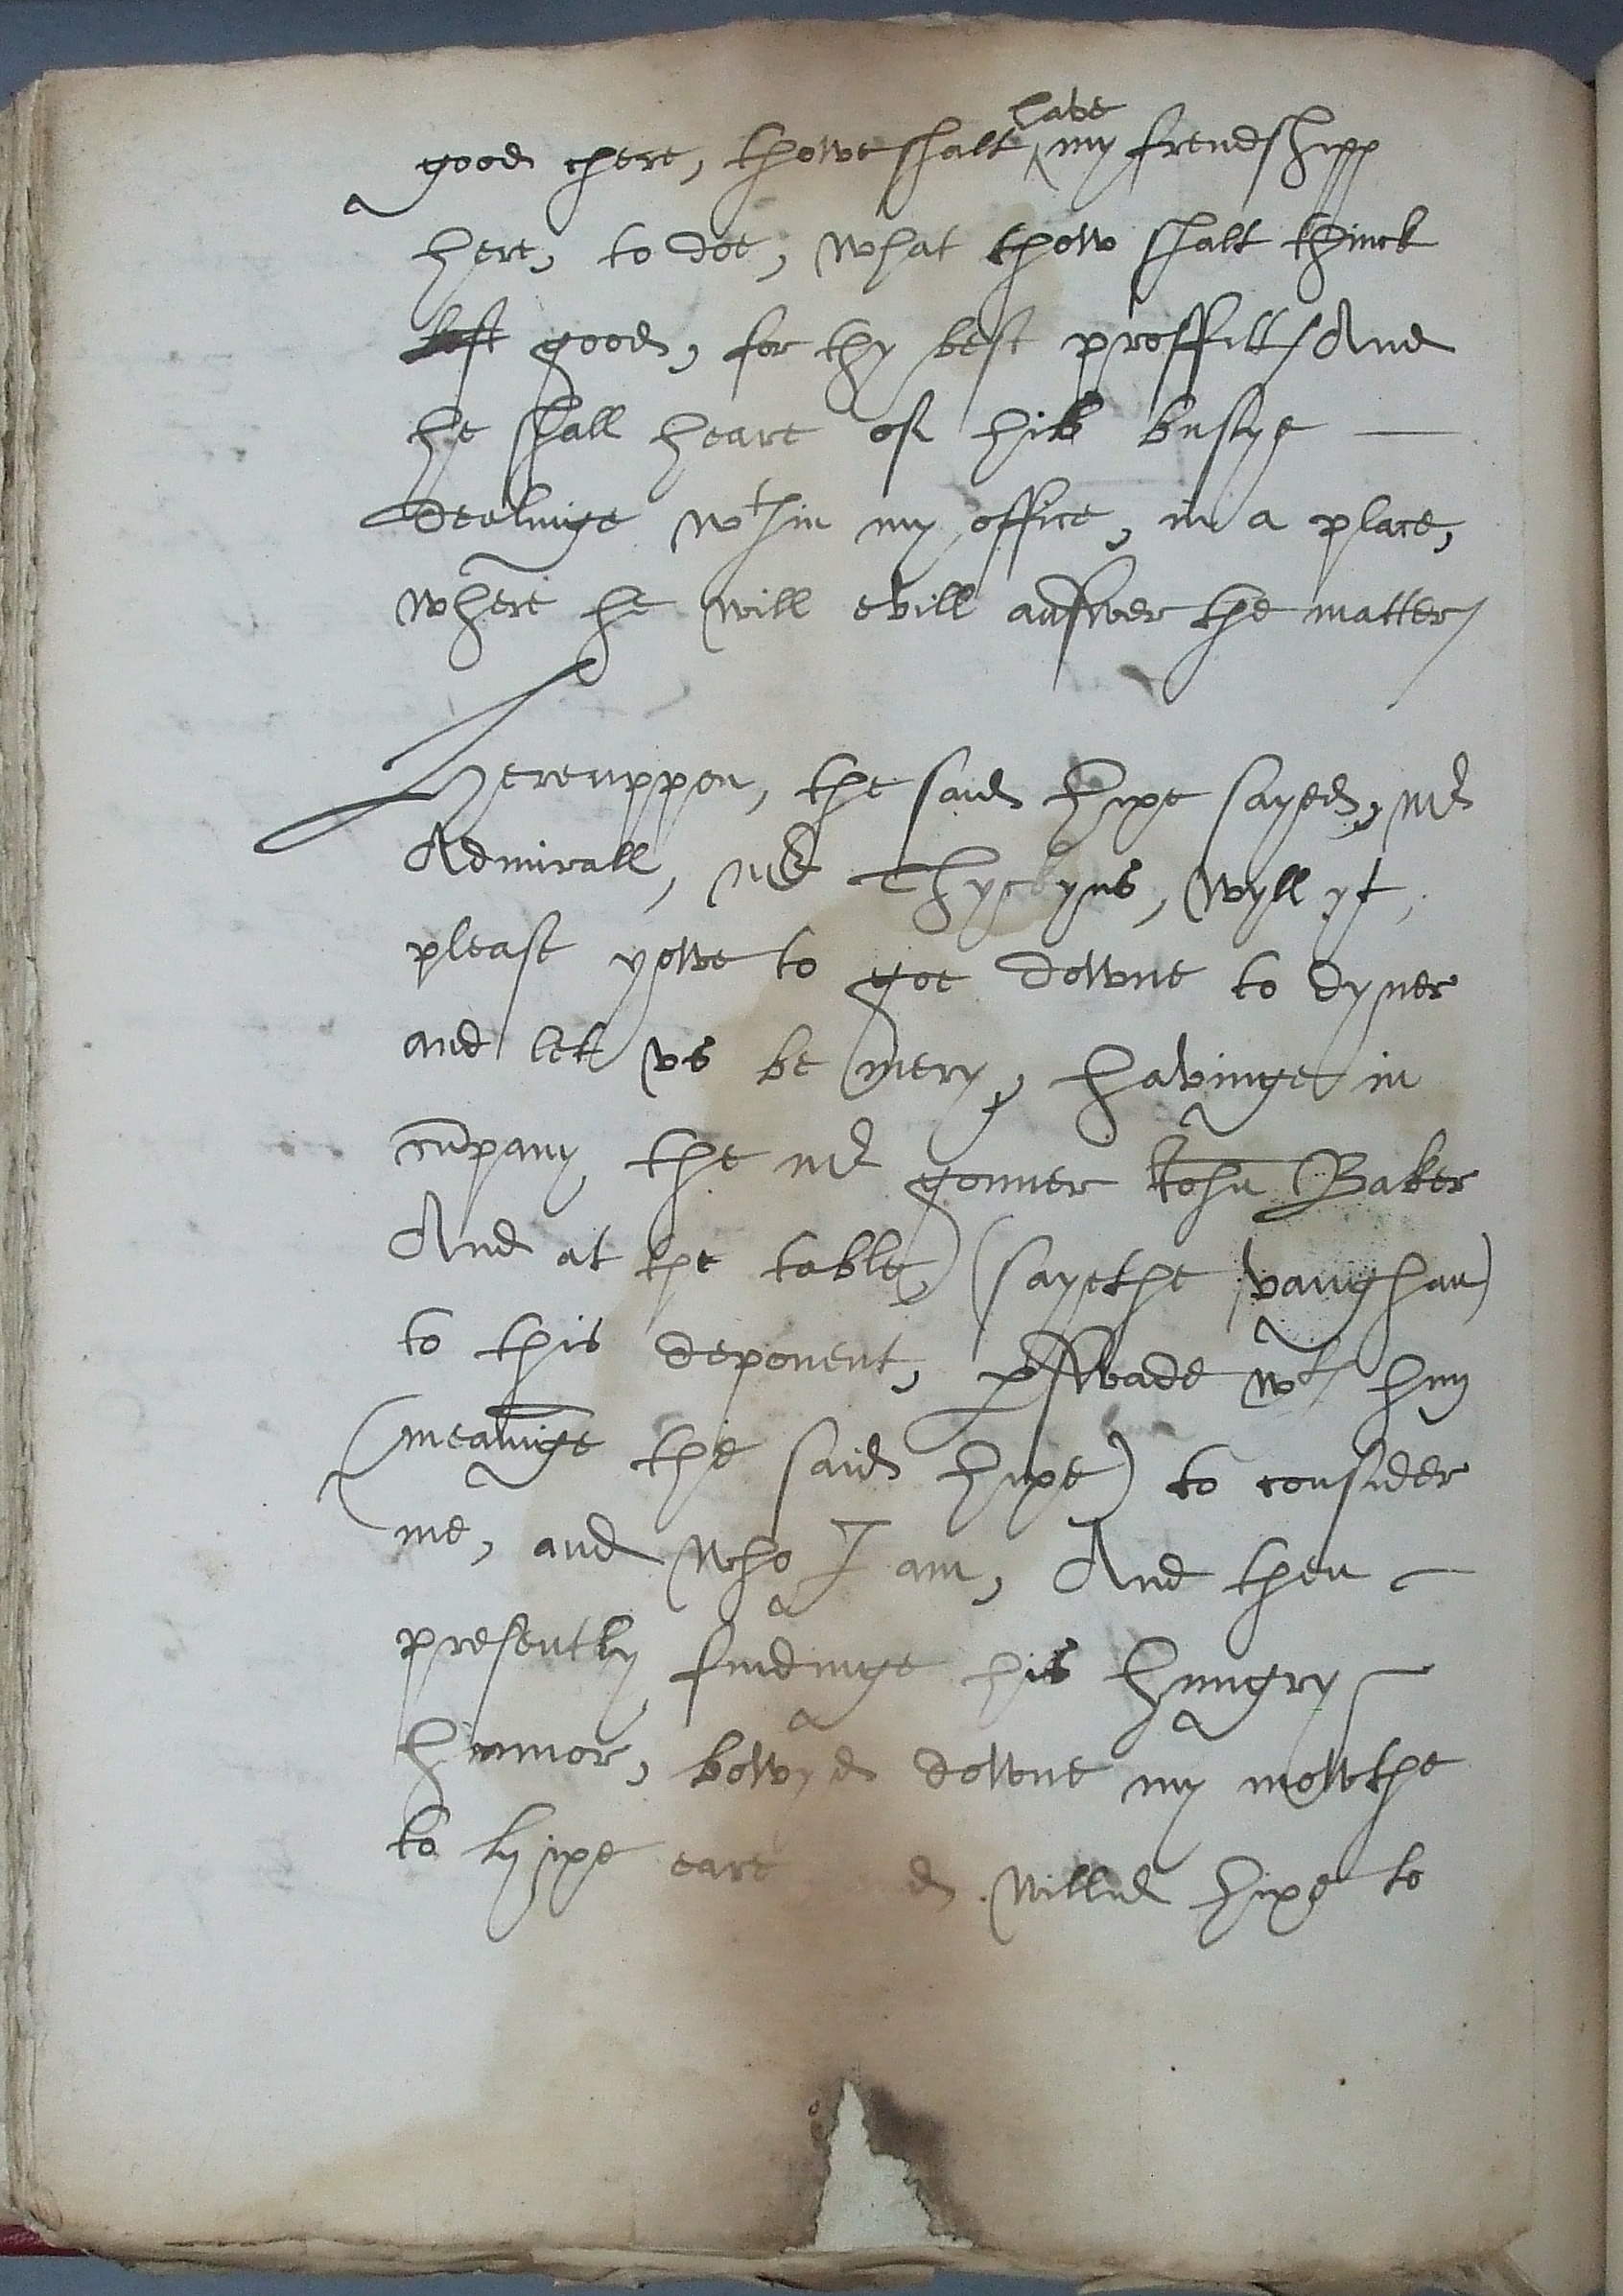 have
good chere, thowe shalt ^ my frendshipp
here, to doe, what thow shalt thinck
best good, for thy best proffitt / And
he shall heare of his busye —
dealinge wthin my office, in a place,
where he will evill answer the matter /
Hereuppon, the said hixe sayed, mr
Admirall, mr Thyckyns, wyll yt,
please yowe to goe downe to dyner
and lett vs be mery, havinge in
cumpany the mr gonner John Baker
And at the table, (sayethe vaughan)
to this deponent, pswade wth hym
(meaninge the said hixe) to consider
me, and who I am, And then —
presently findinge his hungry —
humor, bowyed downe my mowthe
to hixe eare d willed hixe to